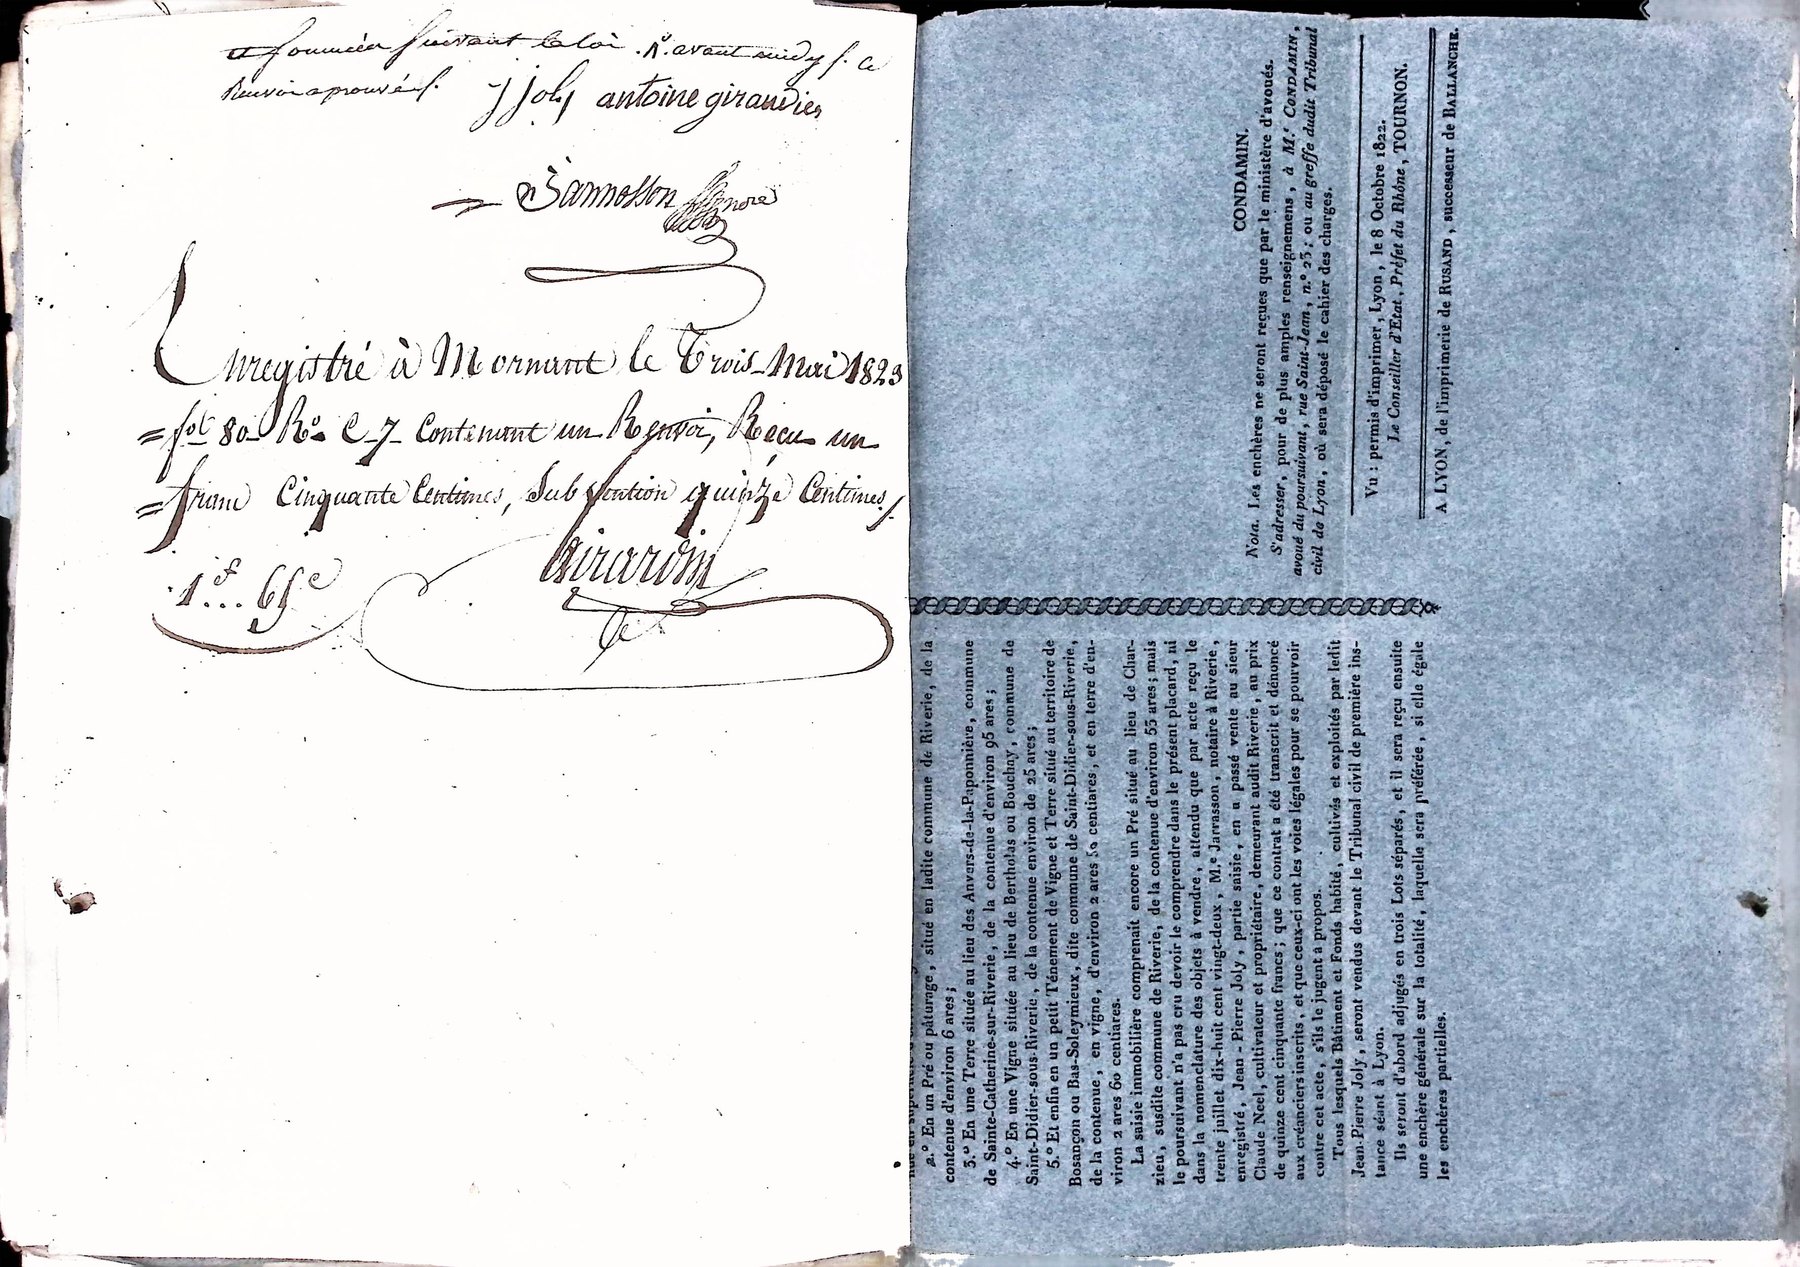 et sommées suivant la loi . Rº. avant midy f. ce
Renvoi aprouvé f.
J joly antoine giraudier
Enregistré à Mornant le Trois Mai 1823
fol 80 Rº C 7 Contenant un Renvoi, Recu un
franc Cinquante Centimes, Subvention quinze Centimes
Girardin
1f... 65c
2.º En un Pré ou pâturage, situé en ladite commune de Riverie, de la
contenue d'environ 6 ares;
3.º En une Terre située au lieu des Anvers-de-la-Paponnière, commune
de Sainte-Catherine-sur-Riverie, de la contenue d'environ 95 ares;
4.º En une Vigne située au lieu de Bertholas ou Bouchay, commune de
Saint-Didier-sous-Riverie, de la contenue environ de 25 ares;
5.º Et enfin en un petit Ténement de Vigne et Terre situé au territoire de
Bosançon ou Bas-Soleymieux, dite commune de Saint-Didier-sous-Riverie,
de la contenue, en vigne, d'environ 2 ares 50 centiares, et en terre d'en-
viron 2 ares 60 centiares.
La saisie immobilière comprenait encore un Pré situé au lieu de Char-
zieu, susdite commune de Riverie, de la contenue d'environ 53 ares; mais
le poursuivant n'a pas cru devoir le comprendre dans le présent placard, ni
dans la nomenclature des objets à vendre, attendu que par acte reçu le
trente juillet dix-huit cent vingt-deux, M.e Jarrasson, notaire à Riverie,
enregistré, Jean-Pierre Joly, partie saisie, en a passé vente au sieur
Claude Neel, cultivateur et propriétaire, demeurant audit Riverie, au prix
de quinze cent cinquante francs; que ce contrat a été transcrit et dénoncé
aux créanciers inscrits, et que ceux-ci ont les voies légales pour se pourvoir
contre cet acte, s'ils le jugent à propos.
Tous lesquels Bâtiment et Fonds habité, cultivés et exploités par ledit
Jean-Pierre Joly, seront vendus devant le Tribunal civil de première ins-
tance séant à Lyon.
Ils seront d'abord adjugés en trois Lots séparés, et il sera reçu ensuite
une enchère générale sur la totalité, laquelle sera préférée, si elle égale
les enchères partielles.
CONDAMIN.
Nota. Les enchères ne seront reçues que par le ministère d'avoués.
S'adresser, pour de plus amples renseignemens, à M.e CONDAMIN,
avoué du poursuivant, rue Saint-Jean, n.º 23; ou au greffe dudit Tribunal
civil de Lyon, où sera déposé le cahier des charges.
Vu : permis d'imprimer, Lyon, le 8 Octobre 1822.
Le Conseiller d'Etat, Préfet du Rhône, TOURNON.
A LYON, de l'imprimerie de RUSAND, successeur de BALLANCHE.